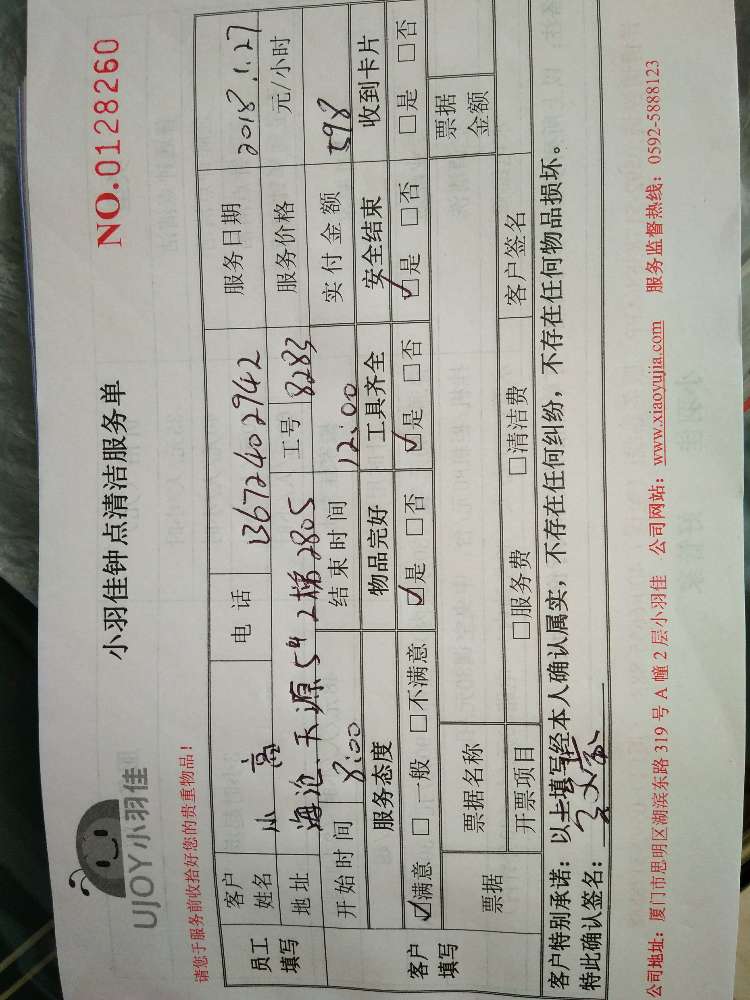 UJOY小羽佳
小羽佳钟点清洁服务单
NO.0128260
请您于服务前收拾好您的贵重物品!
员工填写
客户姓名 小高 电话 13672402942 服务日期 2018.1.27
地址 海沧天源54 2梯2805 工号 8283 服务价格 元/小时
开始时间 8:00 结束时间 12:00 实付金额 598
客户填写
服务态度 物品完好 工具齐全 安全结束 收到卡片
☑满意 □一般 □不满意 ☑是 □否 ☑是 □否 ☑是 □否 □是 □否
票据 票据名称 票据金额
开票项目 □服务费 □清洁费 客户签名
客户特别承诺:以上填写经本人确认属实,不存在任何纠纷,不存在任何物品损坏。
特此确认签名:
公司地址:厦门市思明区湖滨东路 319 号 A 幢 2 层小羽佳 公司网站:www.xiaoyujia.com 服务监督热线:0592-5888123